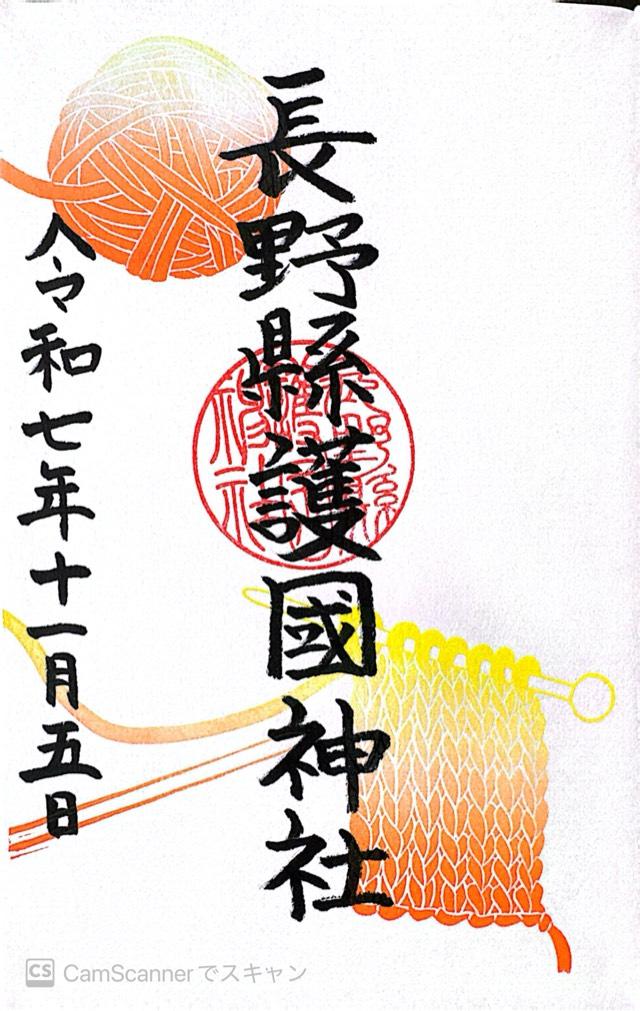 長野縣護國神社
令和七年十一月五日
CS CamScannerでスキャン